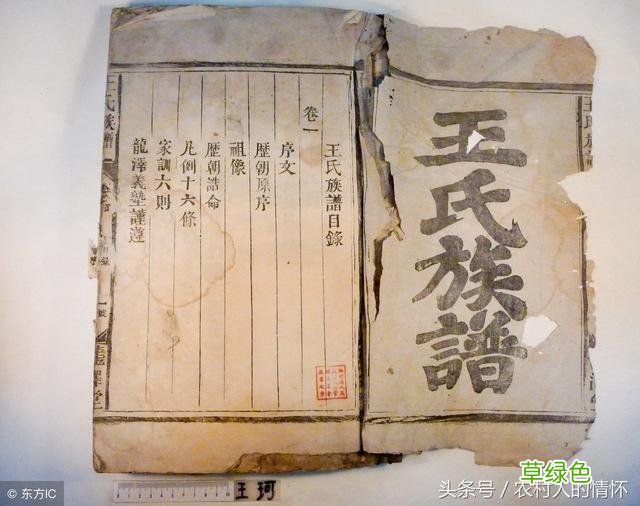 王氏族譜
王氏族譜目錄
卷一
序文
歷朝原序
祖像
歷朝誥命
凡例十六條
家訓六則
龍澤義塾謹遵
王氏族譜
王珂
草绿色
头条号／农村人的情怀
© 东方IC